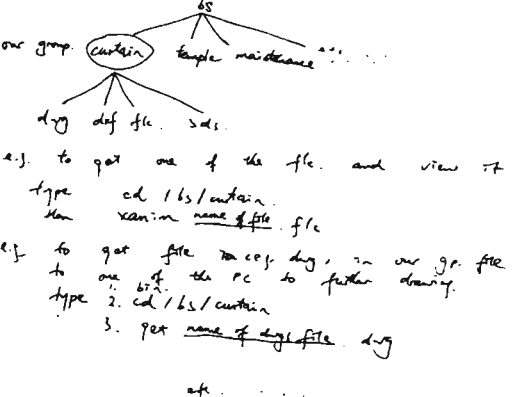 bs
our group. curtain temple maintenance etc. . . .
dwg dxf flc. 3ds.
e.g. to get one of the flc. and view it
type cd /bs/curtain.
then xanim name of file. flc
e.g. to get file dwg, in our gp. file
to one of the PC to further drawing.
type 1. bin.
2. cd /bs/curtain
3. get name of dwgs file. dwg
etc. . . . .